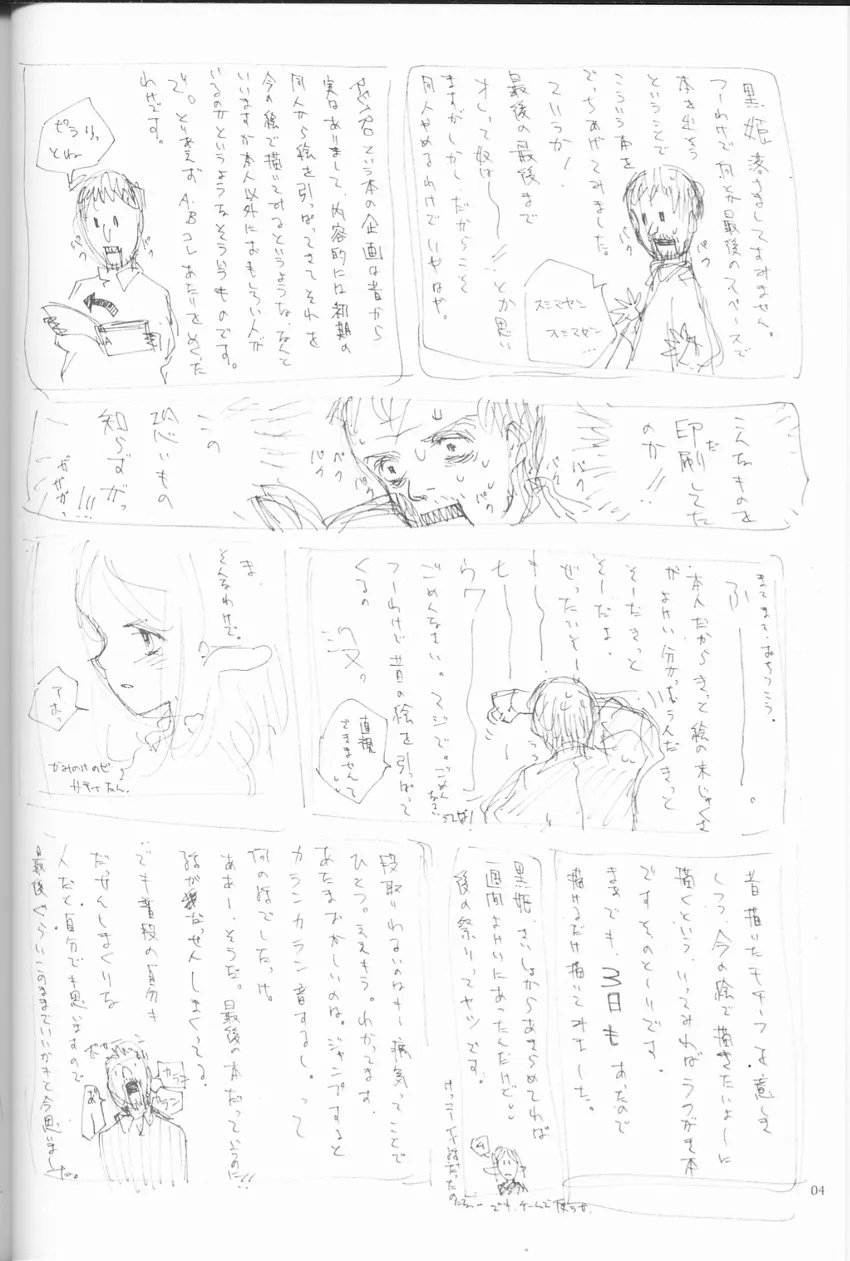 黒姫 落としましてすみません。
つーわけで何とか最後のスペースで
本を出そう
ということで
こういう本を
でっちあげてみました。
ていうか!
最後の最後まで
オレって奴は〜〜!! とか思い
ますがしかし、だからこそ
同人やめるわけで いやはや。
スミマセン
スミマセン
パク
パク
という本の企画は昔から
実はありまして、内容的には初期の
同人から絵を引っぱってきてそれを
今の絵で描いてみるというような、なんと
いいますか本人以外におもしろい人が
いるのかというようなそういうものです。
で。とりあえず A.Bコレあたりをめくった
わけです。
ピラリっ
とね
パク
パク
A
こんなものを
だ
印刷してた
のか!!
パク
パク
パク
パク
この
恐いもの
知らずがっ
!!!
まてまて、おちつこう。
ふーーー。
本人だからきっと絵の未じゅくさ
がよけい分かっちゃうんだ きっと
そーだきっと
そーだよ.
ぜったいそー
キー
モー
ウワー
ごめんなさい。マジで。ごめん
なさい
つーわけで昔の絵を引っぱって
くるの
没。
直視
できませんて
ま、
そんなわけで。
アホっ
昔描いたモチーフを意しき
しつつ、今の絵で描きたいよーに
描くという、いってみればらくがき本
です。そのとーりです。
まあでも、3日もあったので
描けるだけ描いてみました。
黒姫、さいしょからあきらめてれば
一週間よけいにあったんだけど。
後の祭りってヤツです。
段取りわるいのはもー病気ってことで
ひとつ。ええもう。わかってます.
あたまおかしいのは。ジャンプすると
カランカラン音するし。って
何の話でしたっけ。
ああー、そうだ。最後の本だっていうのに!!
話がだっせんしまくってる.
でも普段の自分も
だっせんしまくりな
人だと自分でも思いますので
最後ぐらいこのままでいいかなと今思いました。
カラン
カラン
04